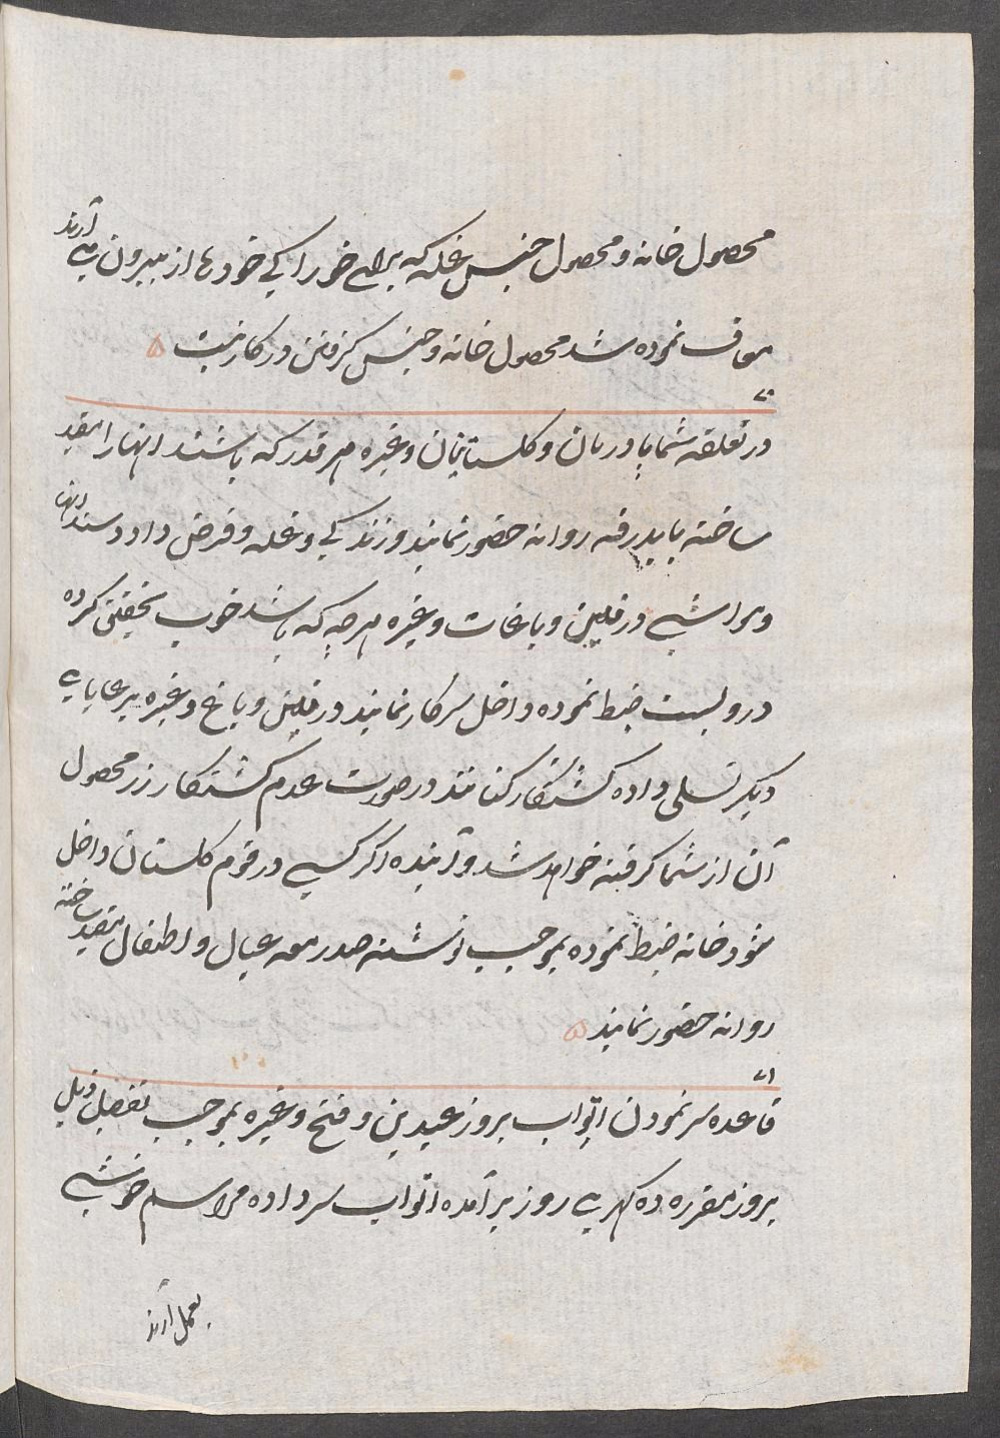 محصول خانه و محصول جنس غله که برای خوراکی خودها از بیرون می آرند
معاف نموده شد محصول خانه و جنس گرفتن در کار نیست ۵
۷۰
در تعلقه شما پادریان و کلستانیان وغیره هر قدر که باشند انها را مقید
ساخته روانه حضور نمایند و زندگی و غله و قرض داد و ستد انها
و مواشی و زمین و باغات وغیره هر چه که باشد خوب تحقیق کرده
در و بست ضبط نموده داخل سرکار نمایند و زمین و باغ وغیره برعایای
دیگر تسلی داده کشتکار کنانند در صورت عدم کشتکار زر محصول
آن از شما گرفته خواهد شد و آینده اگر کسی در قوم کلستان داخل
شود خانه ضبط نموده بموجب نوشته صدر معه عیال و اطفال مقید ساخته
روانه حضور نمایند ۵
۷۱
قاعده سر نمودن اتواپ بروز عیدین و فتح وغیره بموجب تفصیل ذیل
بروز مقرره ده گهری روز برآمده اتواپ سر داده مراسم خوشی
بعمل آرند